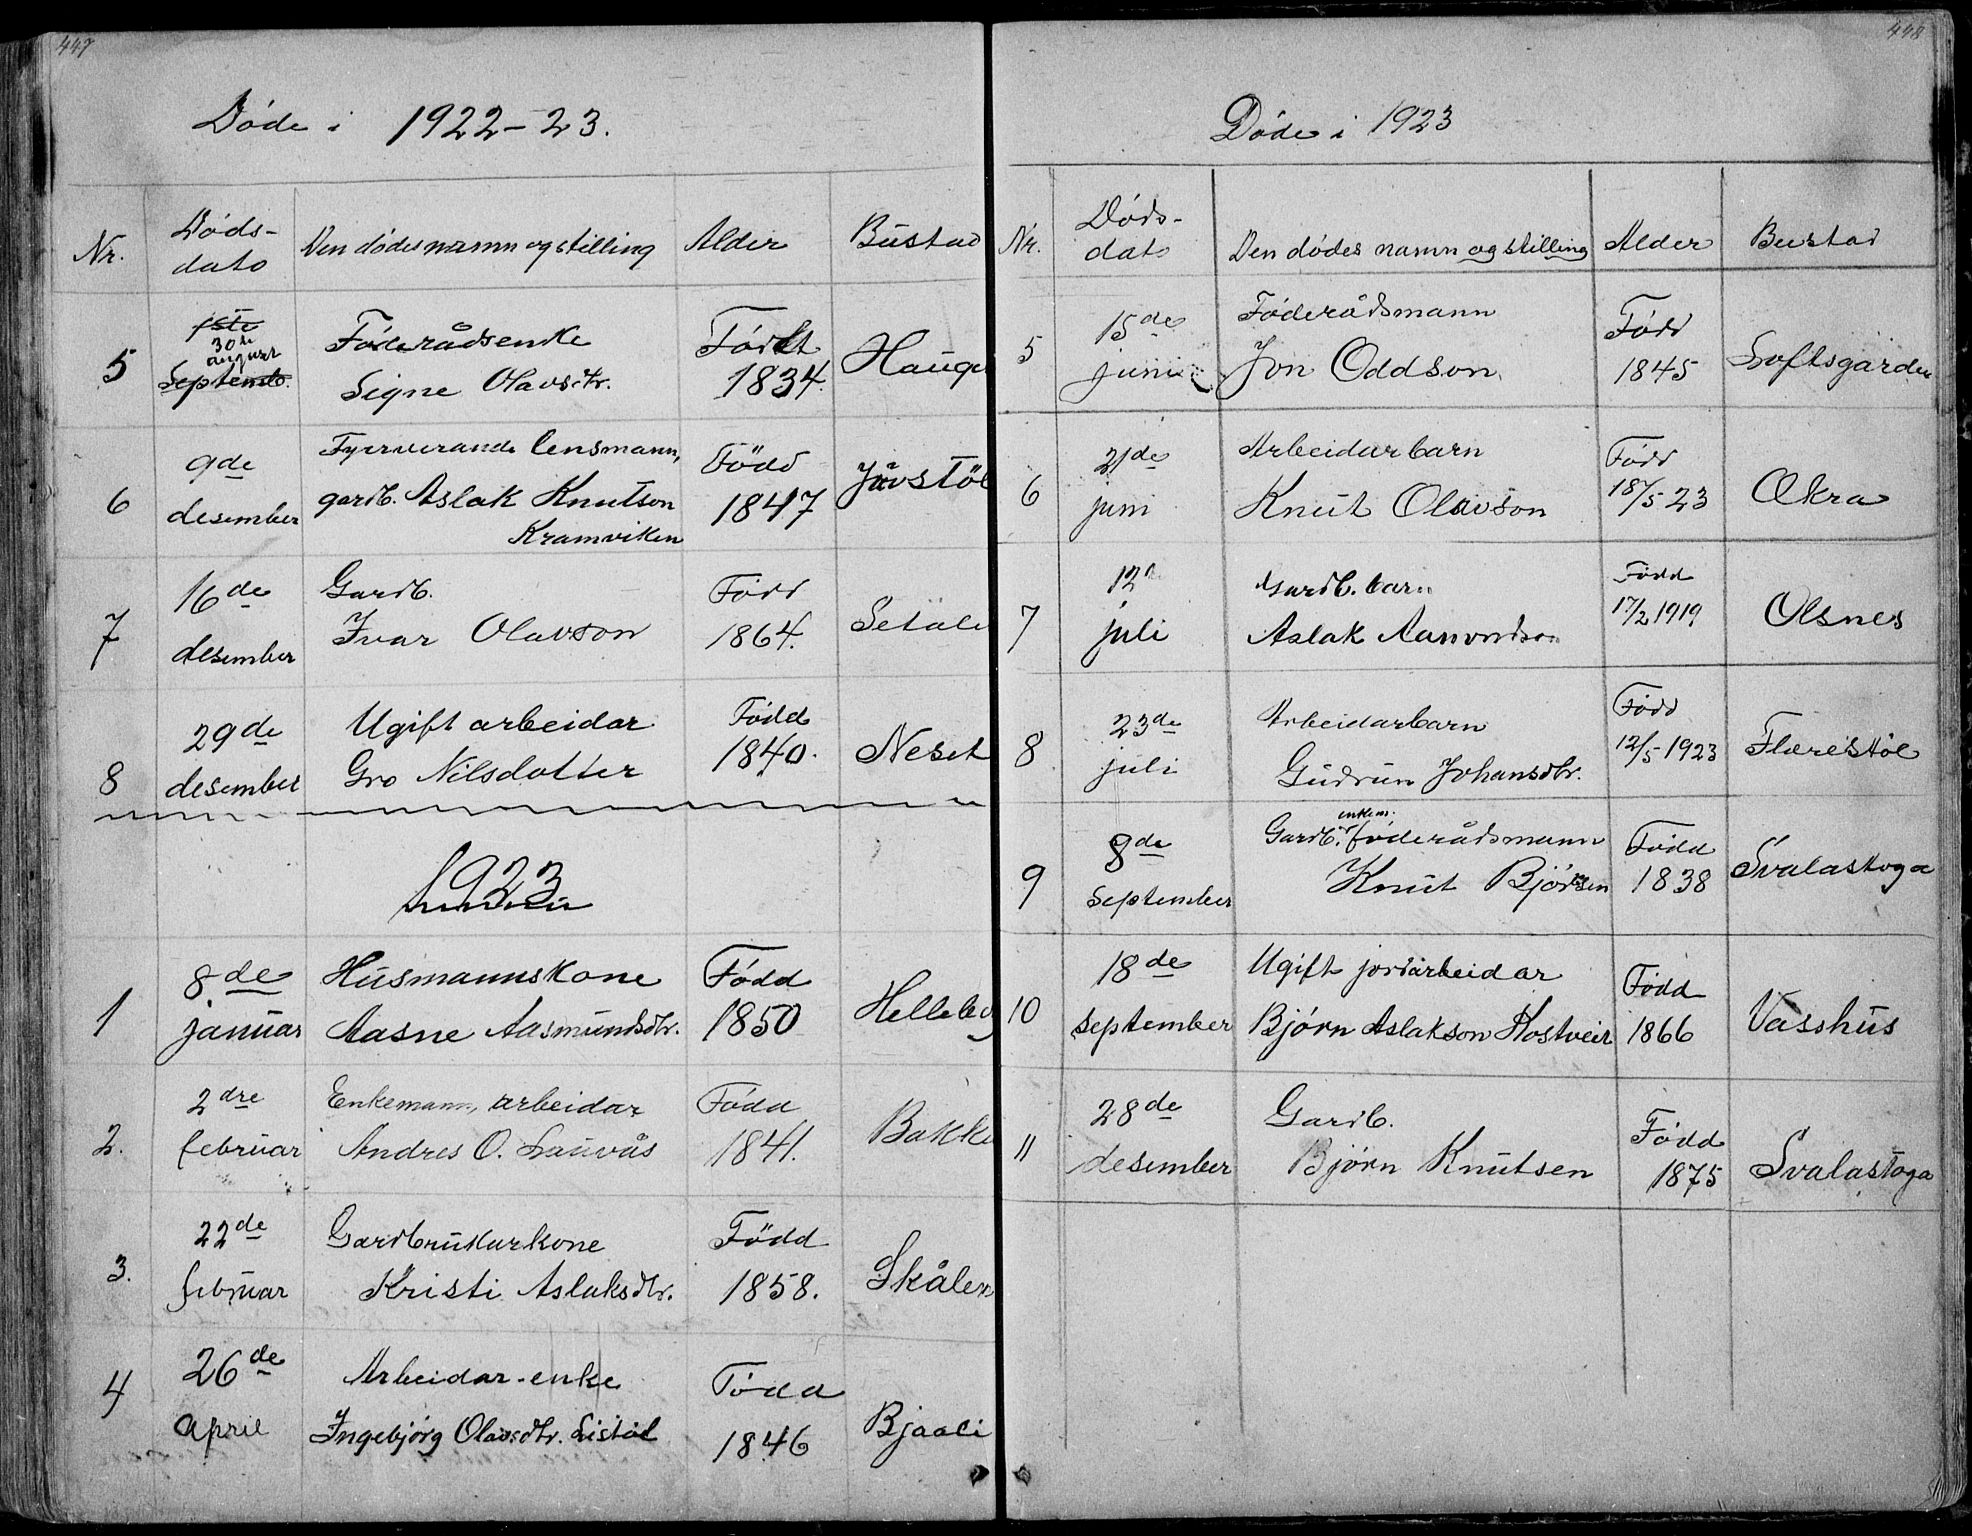 447
Døde i 1922-23.
Nr. Døds- dato Den dødes namn og stilling Alder Bustad
5 1ste 30te august Septemb. Føderådsenke Signe Olavsdtr. Født 1834. Hauge
6 9de desember Fyrverande lensmann, gardb. Aslak Knutson Kramviken Född 1847 Jåvstöl
7 16de desember Gardb. Ivar Olavson Född 1864.
8 29de desember Ugift arbeidar Gro Nilsdotter Född 1840. Neset
1923
1 8de januar Husmannskone Aasne Aasmundsdtr. Född 1850
2. 2dre februar Enkemann, arbeidar Andres O. Lauvås Född 1841. Bakke
3. 22de februar Gardbrukarkone Kristi Aslaksdtr. Född 1858. Skålen
4 26de April Arbeidar-enke Ingebjörg Olavsdtr. Listöl Född 1846 Bjaali
448
Døde i 1923
Nr. Døds- dato Den dødes namn og stilling Alder Bustad
5 15de juni Føderådsmann Jon Oddson Född 1845 Loftsgarden
6 21de juni Arbeidarbarn Knut Olavson Född 18/5 23 Økra
7 12 juli Gardb. barn Aslak Aamundson Född 17/2 1919 Olsnes
8 23de juli Arbeidarbarn Gudrun Johansdtr. Född 12/5 1923
9 8de september Gardb. enkem. føderådsmann Knut Bjørsen Född 1838 Svalastoga
10 18de september Ugift jordarbeidar Bjørn Aslakson Hostveit Född 1866 Vasshus
11 28de desember Gardb. Bjørn Knutsen Född 1875 Svalastoga